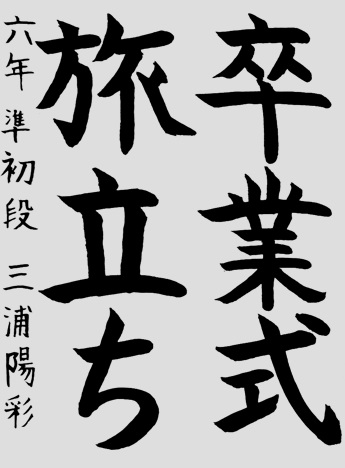 卒業式
旅立ち
六年 準初段 三浦陽彩